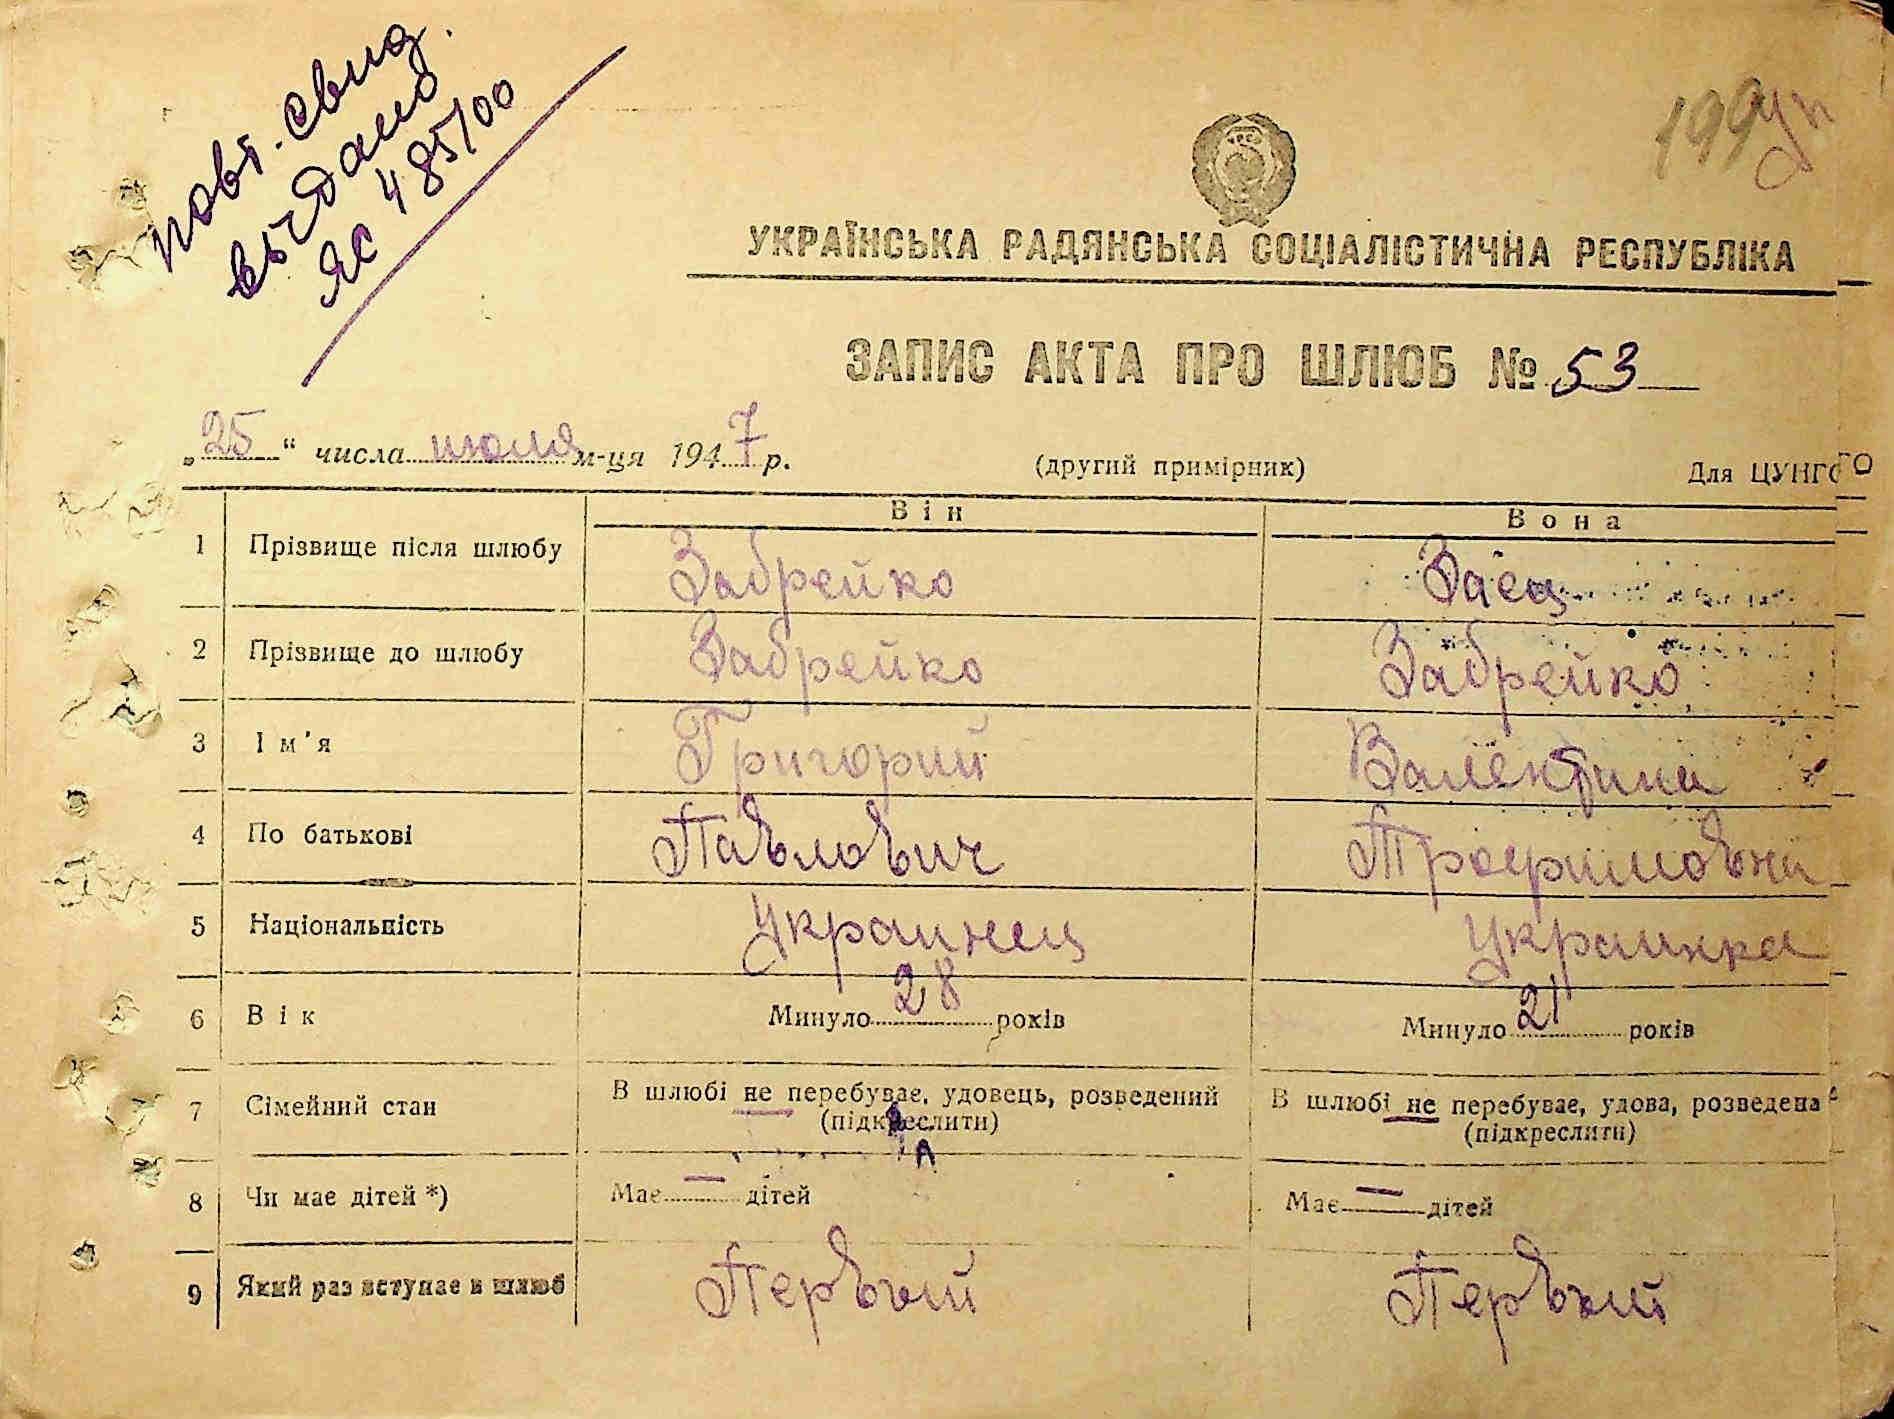 повт. свид.
выдано
ЯС 485100
199
УРСР
УКРАЇНСЬКА РАДЯНСЬКА СОЦІАЛІСТИЧНА РЕСПУБЛІКА
ЗАПИС АКТА ПРО ШЛЮБ № 53
„25“ числа июля м-ця 1947 р. (другий примірник) Для ЦУНГО
Він Вона
1 Прізвище після шлюбу Забрейко Заец
2 Прізвище до шлюбу Забрейко Забрейко
3 Ім'я Григорий Валентина
4 По батькові Павлович Трофимовна
5 Національність Украинец Украинка
6 Вік Минуло 28 років Минуло 21 років
7 Сімейний стан В шлюбі не перебуває, удовець, розведений В шлюбі не перебуває, удова, розведена
(підкреслити) (підкреслити)
8 Чи має дітей *) Має — дітей Має — дітей
9 Який раз вступає в шлюб Первый Первый